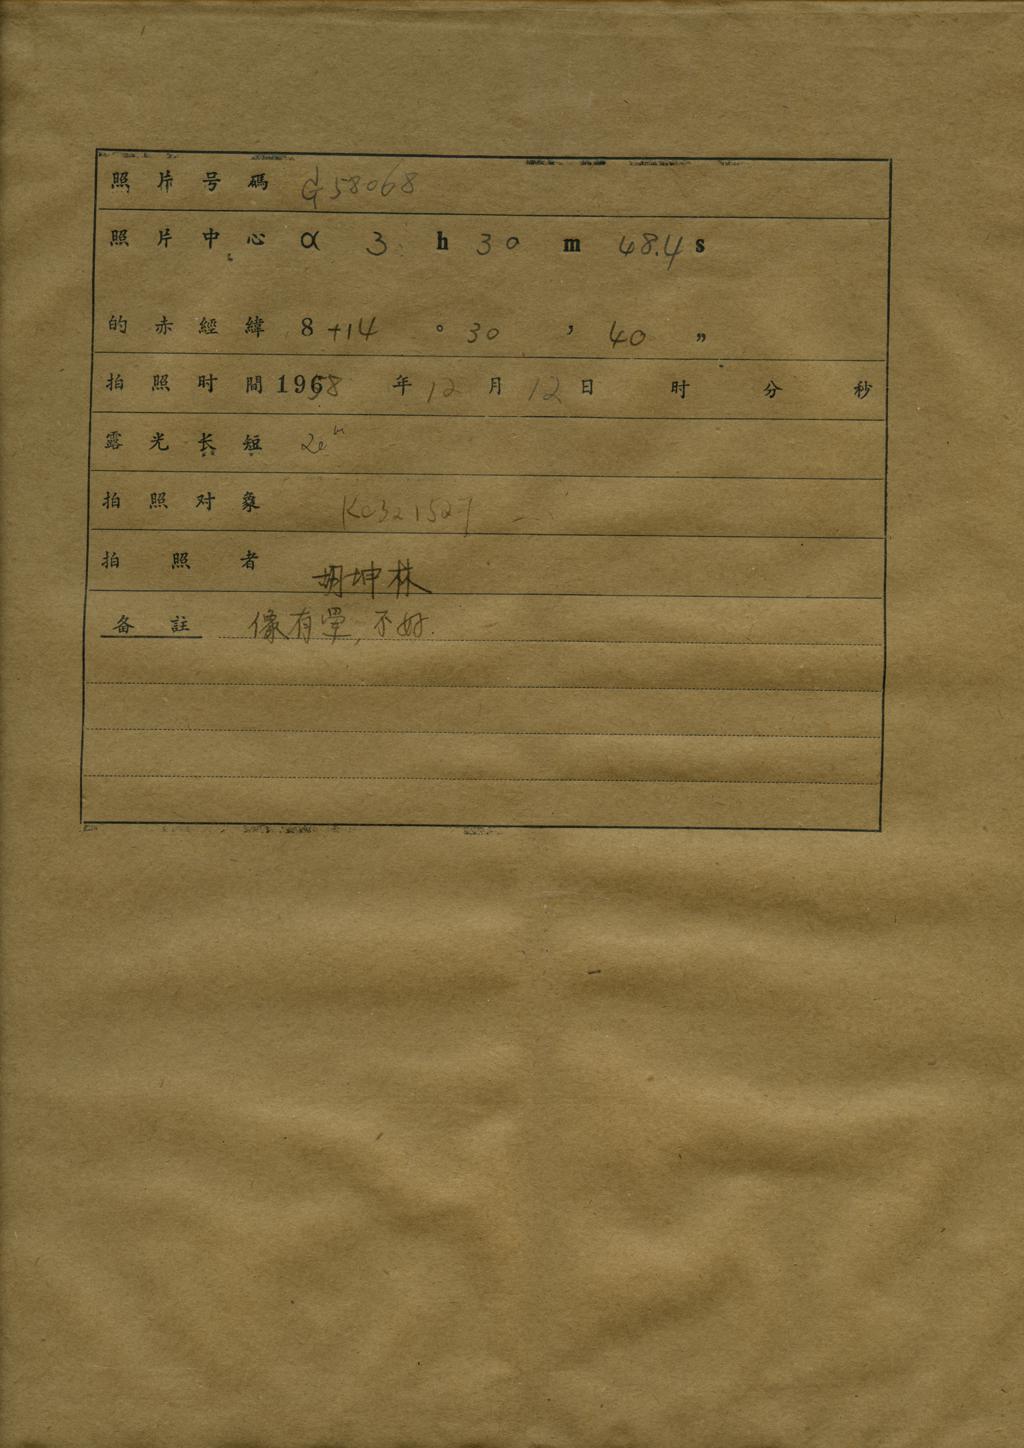 照片号碼 G58068
照片中心 α 3 h 30 m 48.4 s
的赤經緯 8 +14 ° 30 ′ 40 ″
拍照时間 1958 年 12 月 12 日 时 分 秒
露光长短
拍照对象
拍照者 胡坤林
备註 像有暈,不好.